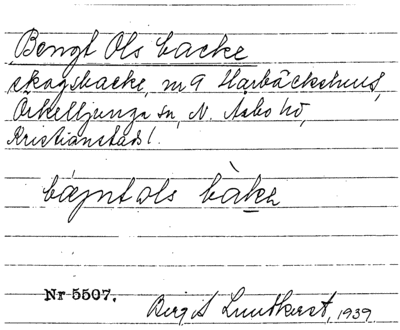 Bengt Ols backe
skogsbacke, nr 9 Harbäckshult,
Örkelljunga sn, N. Åsbo hd,
Kristianstads l.
bæŋt ols bàkə
Nr 5507.
Bergit 1939